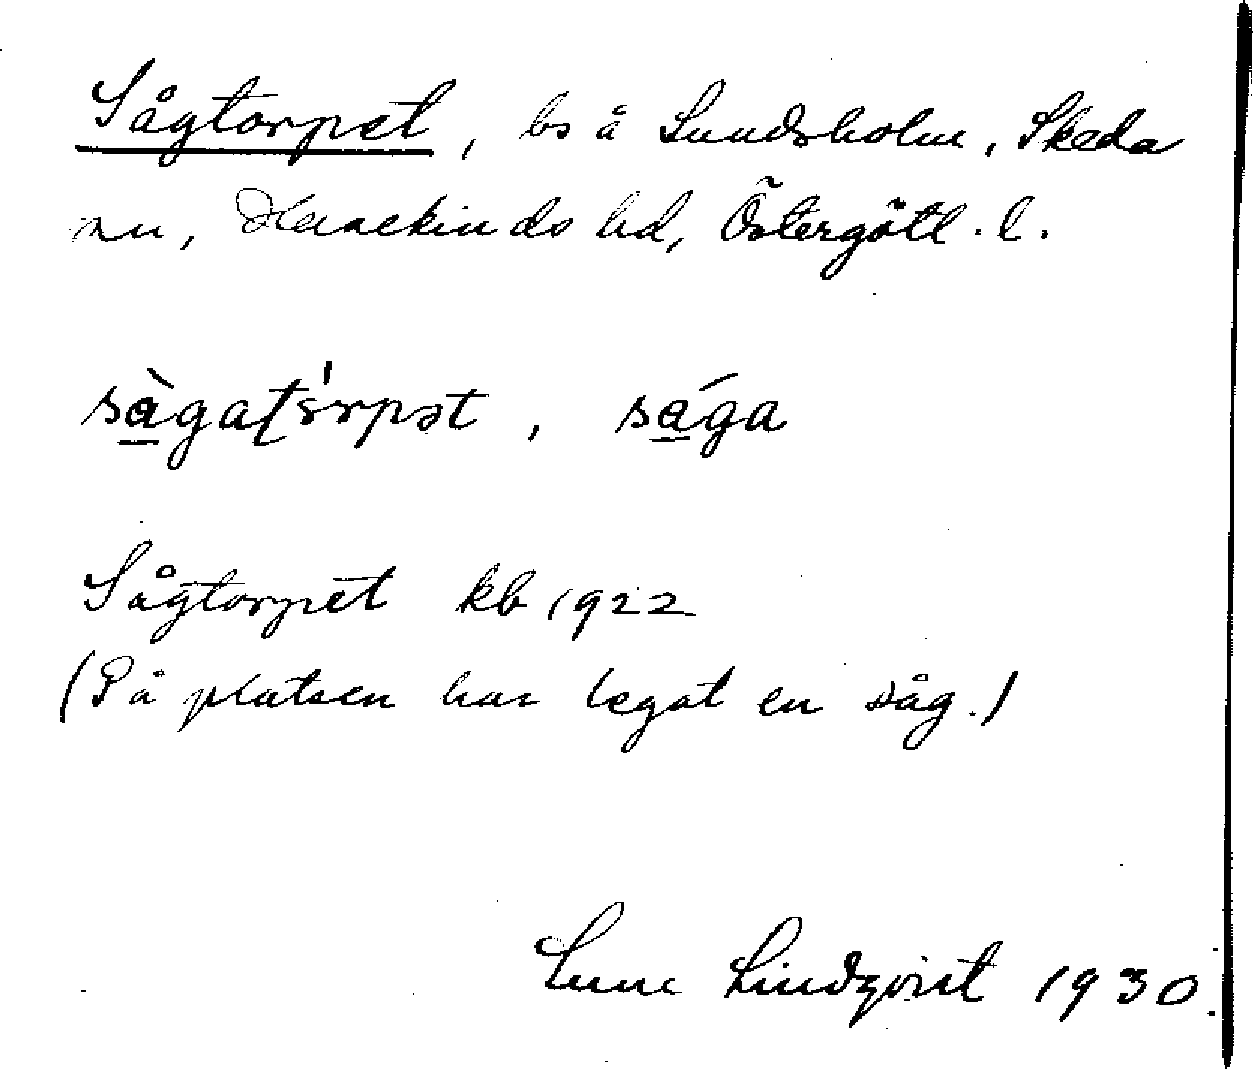 Sågtorpet, bs å Lundsholm, Skeda
sn, Hanekinds hd, Östergötl. l.
sàgatórpət, sága
Sågtorpet kb 1922
(På platsen har legat en såg.)
Sune Lindqvist 1930.